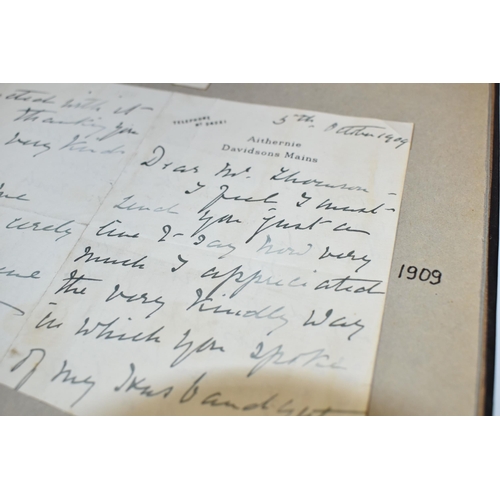 with it
thanking you
very kind
TELEPHONE
5th October 1909
Aithernie
Davidsons Mains
Dear Mr. Thomson -
I feel I must
send you just a
line to say how very
much I appreciated
the very kindly way
in which you spoke
of my Husband
1909